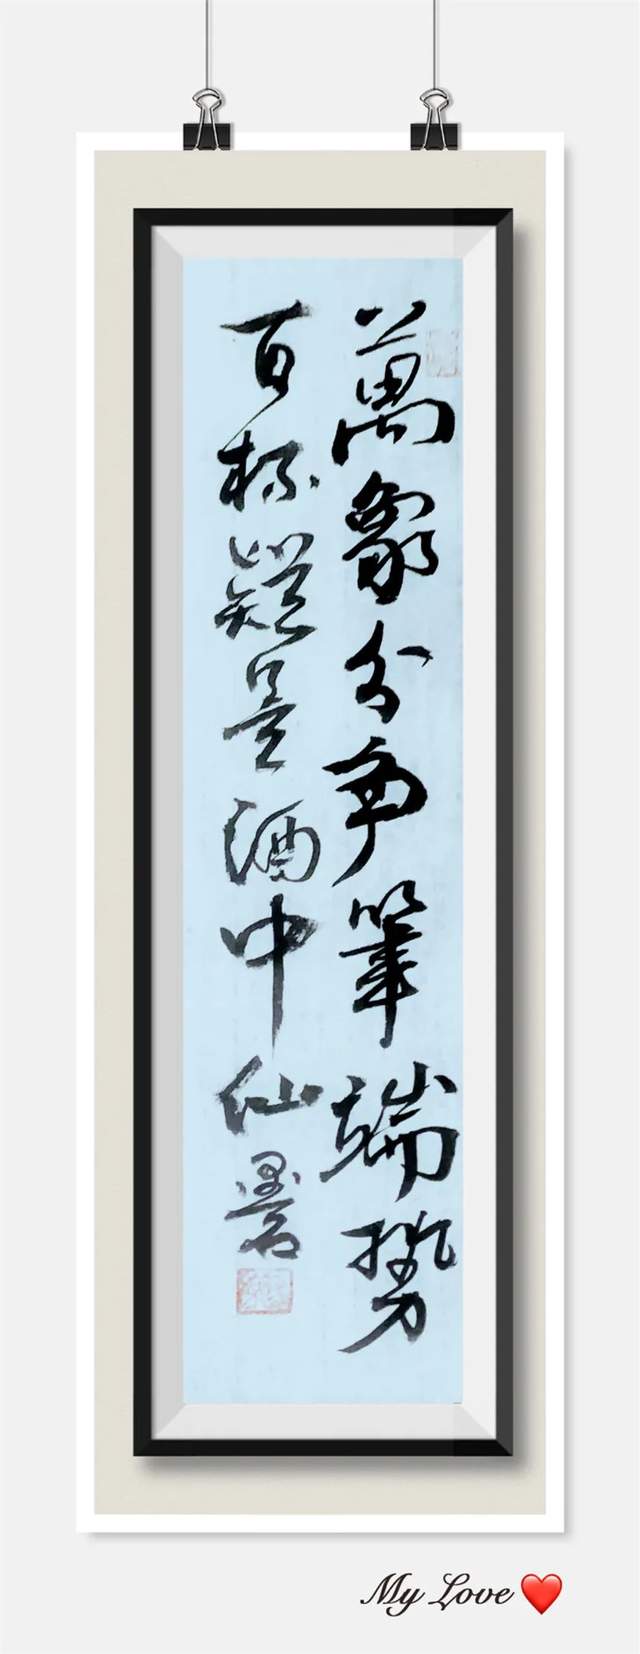 萬象分争筆端勢
百杯疑是酒中仙
My Love❤️